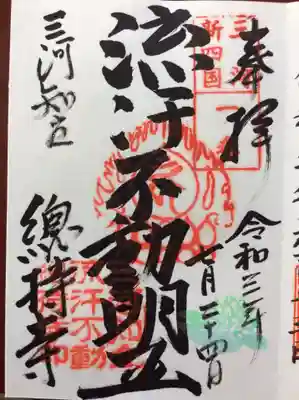 奉拝
令和三年
七月二十四日
三河
新四国
流汗不動明王
流汗不動
三河知立
總持寺